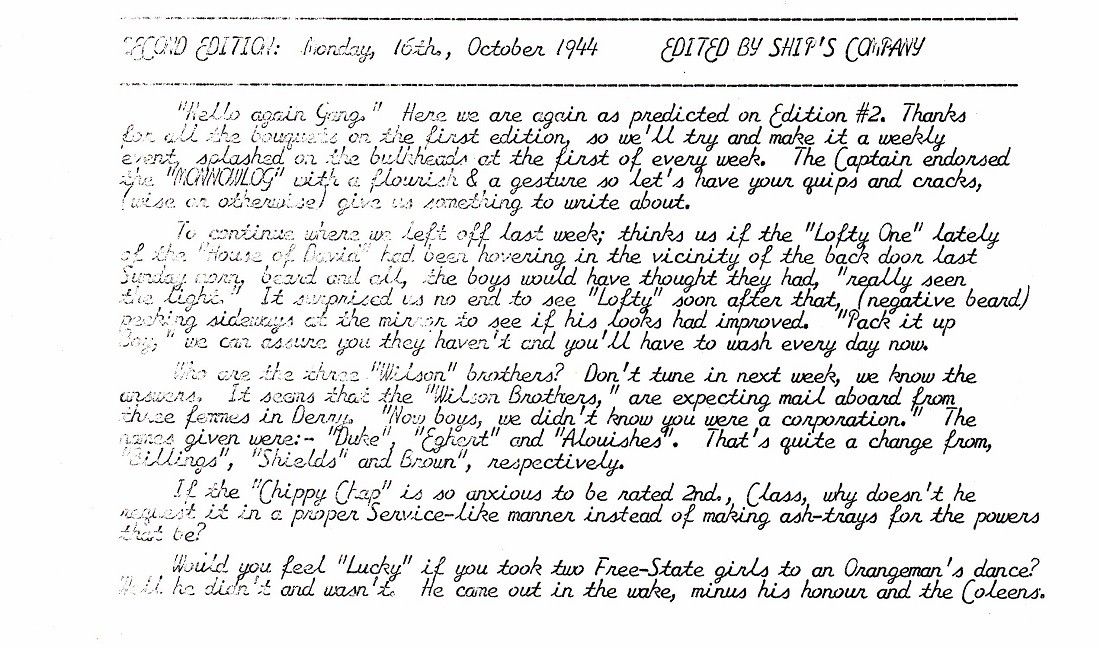 SECOND EDITION: Monday, 16th., October 1944 EDITED BY SHIP'S COMPANY
"Hello again Gang." Here we are again as predicted on Edition #2. Thanks
for all the bouquets on the first edition, so we'll try and make it a weekly
event, splashed on the bulkheads at the first of every week. The Captain endorsed
the "MONNOWLOG" with a flourish & a gesture so let's have your quips and cracks,
(wise or otherwise) give us something to write about.
To continue where we left off last week; thinks us if the "Lofty One" lately
of the "House of David" had been hovering in the vicinity of the back door last
Sunday morn, beard and all, the boys would have thought they had, "really seen
the light." It surprised us no end to see "Lofty" soon after that, (negative beard)
peeking sideways at the mirror to see if his looks had improved. "Pack it up
Boy," we can assure you they haven't and you'll have to wash every day now.
Who are the three "Wilson" brothers? Don't tune in next week, we know the
answers. It seems that the "Wilson Brothers," are expecting mail aboard from
three femmes in Derry. "Now boys, we didn't know you were a corporation." The
names given were:- "Duke", "Egbert" and "Alouishes". That's quite a change from,
"Billings", "Shields" and Brown", respectively.
If the "Chippy Chap" is so anxious to be rated 2nd., Class, why doesn't he
request it in a proper Service-like manner instead of making ash-trays for the powers
that be?
Would you feel "Lucky" if you took two Free-State girls to an Orangeman's dance?
Well he didn't and wasn't. He came out in the wake, minus his honour and the Coleens.